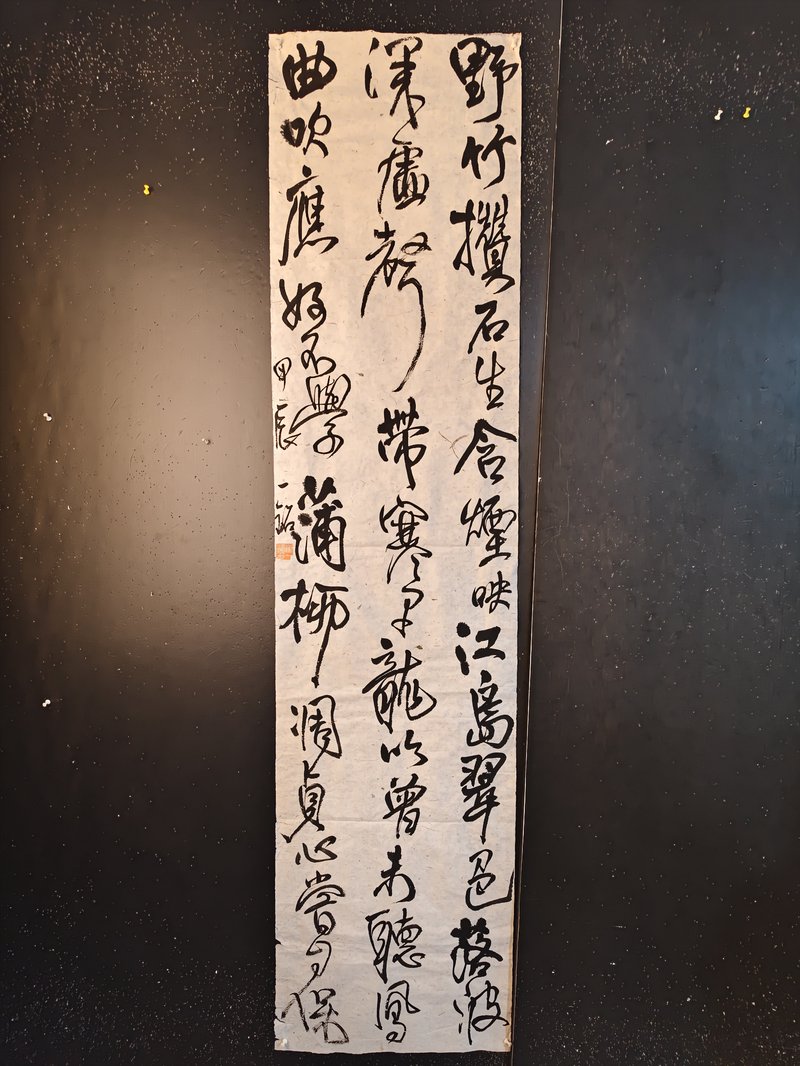 野竹攢石生含煙映江島翠色落波
深虛聲帶寒早龍吟曾未聽鳳
曲吹應好不學蒲柳凋貞心嘗自保
甲辰一銘